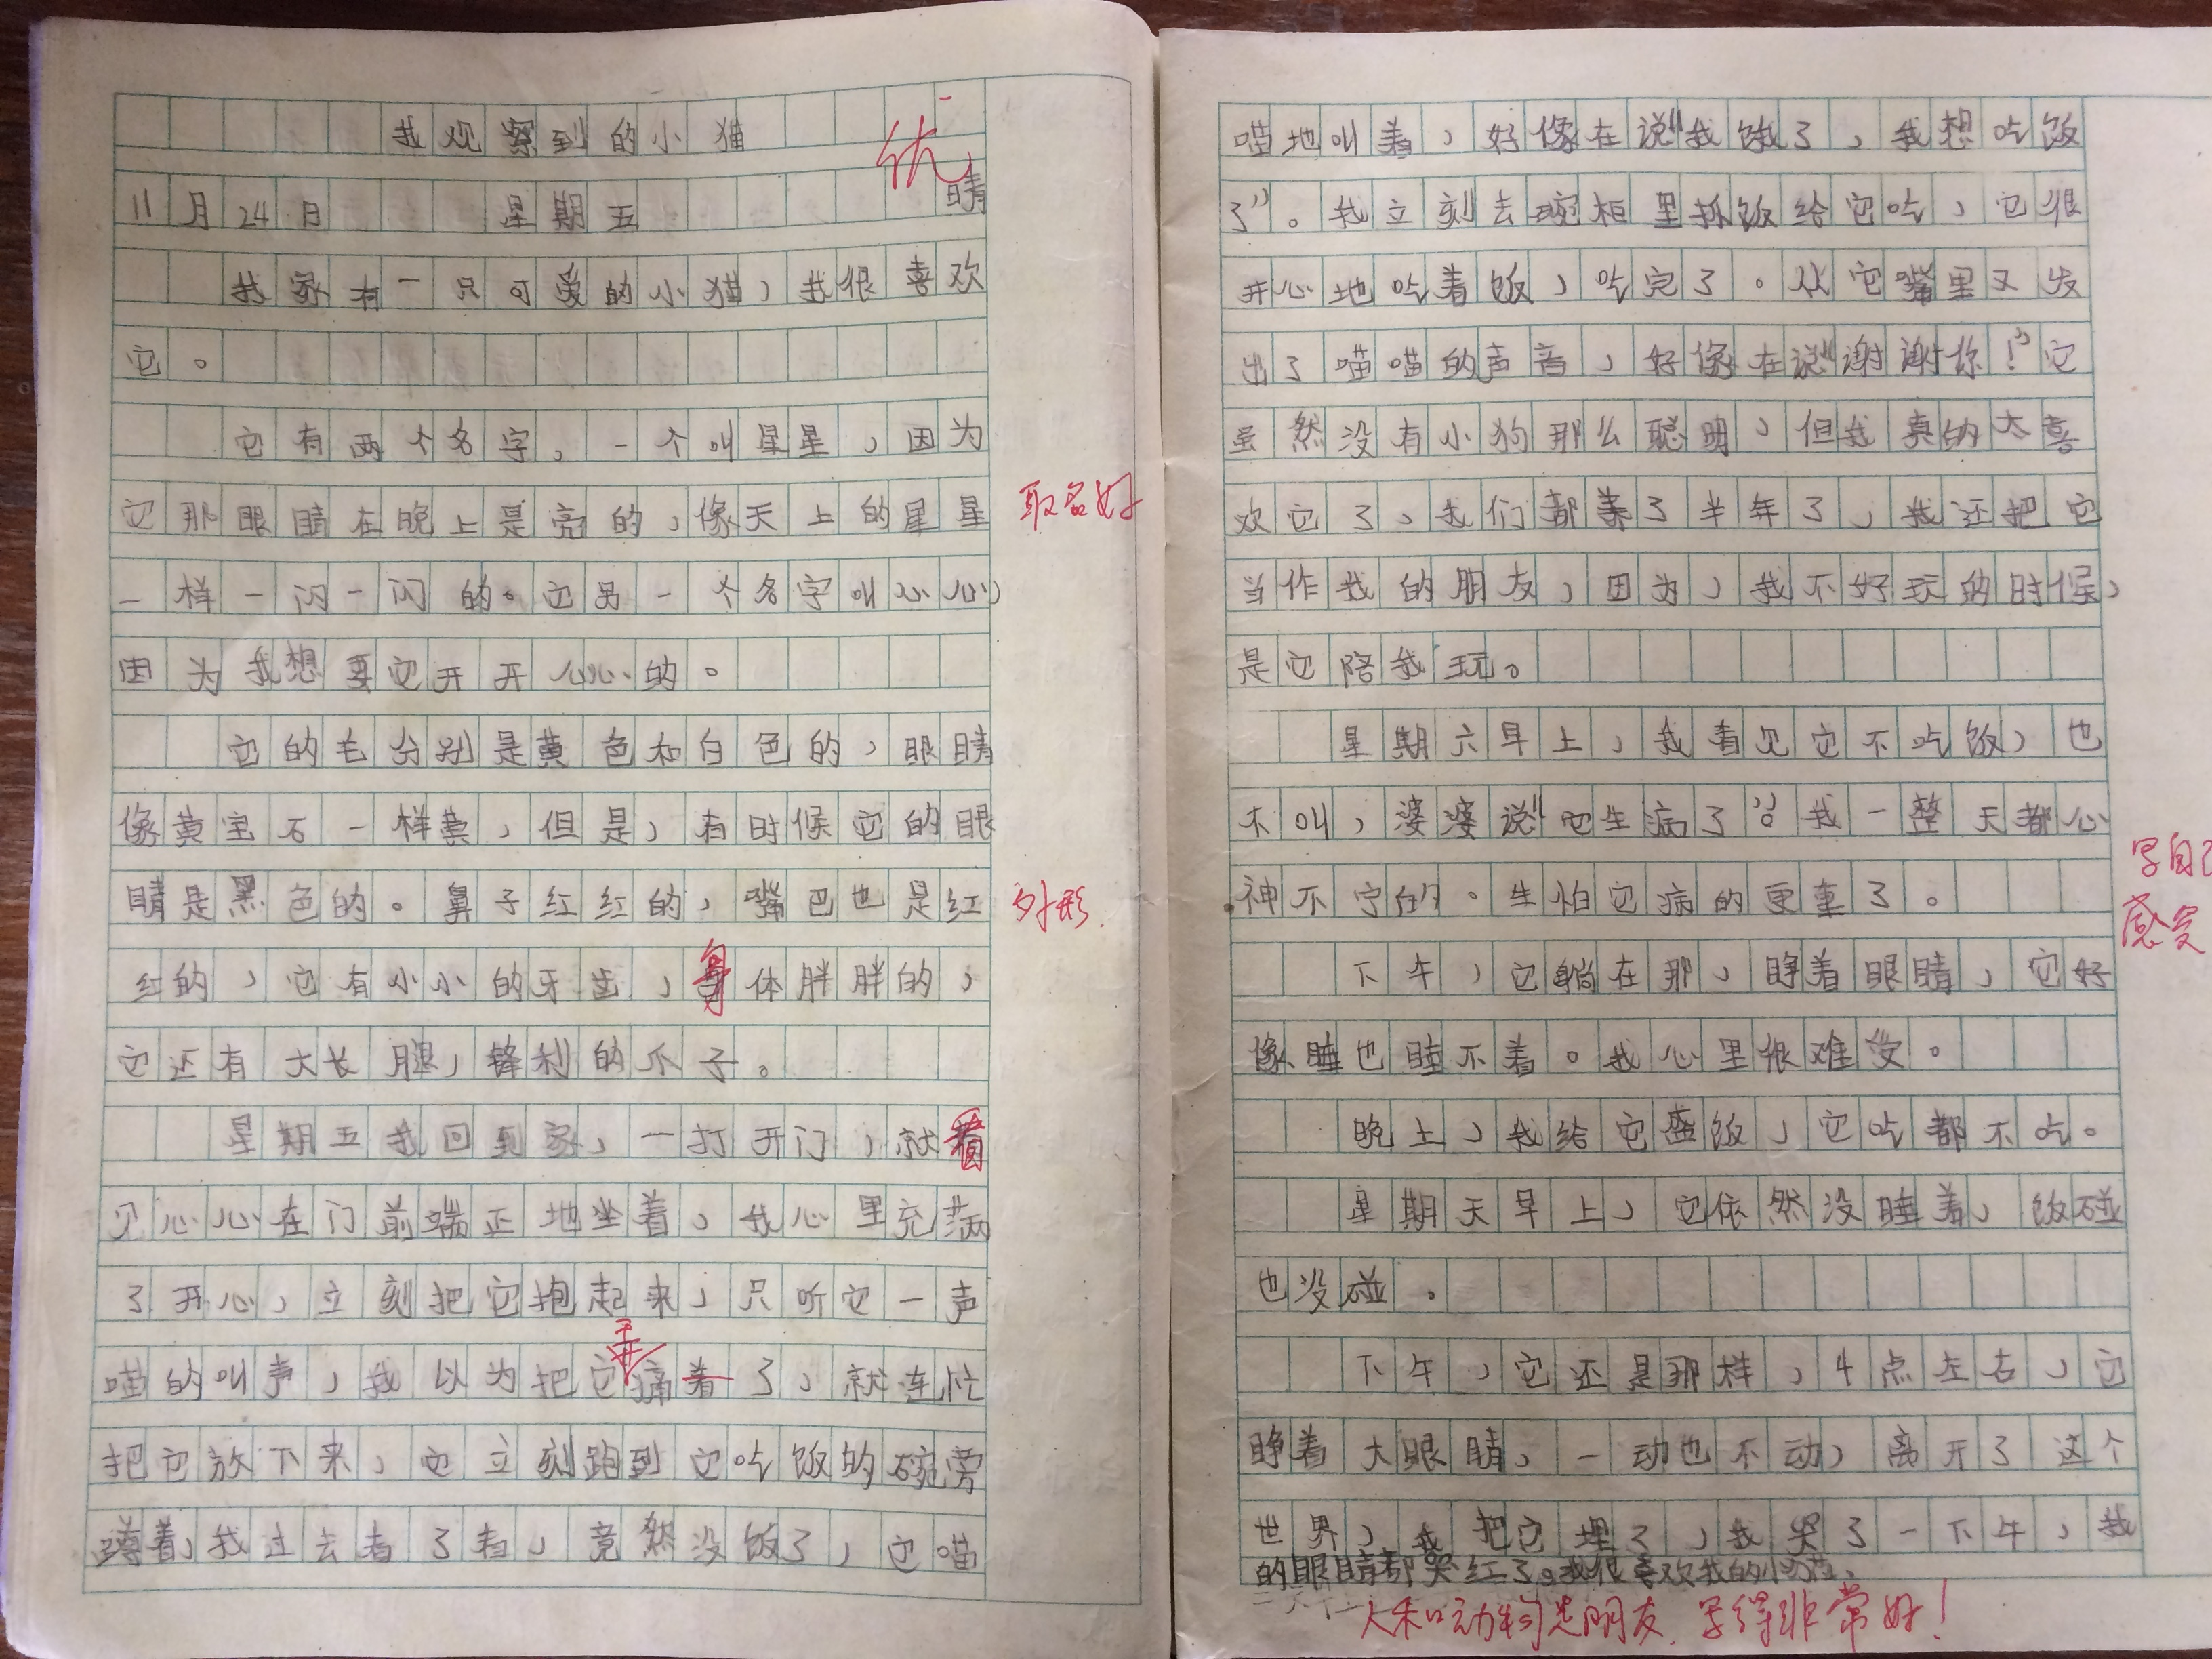 我观察到的小猫
优
11月24日 星期五 晴
我家有一只可爱的小猫，我很喜欢
它。
它有两个名字，一个叫星星，因为
它那眼睛在晚上是亮的，像天上的星星
取名好
一样一闪一闪的。它另一个名字叫心心，
因为我想要它开开心心的。
它的毛分别是黄色和白色的，眼睛
像黄宝石一样黄，但是，有时候它的眼
睛是黑色的。鼻子红红的，嘴巴也是红
外形.
红的，它有小小的牙齿，身体胖胖的，
它还有大长腿，锋利的爪子。
星期五我回到家，一打开门，就看
见心心在门前端正地坐着，我心里充满
了开心，立刻把它抱起来，只听它一声
弄
喵的叫声，我以为把它痛着了，就连忙
把它放下来，它立刻跑到它吃饭的碗旁
蹲着，我过去看了看，竟然没饭了，它喵
喵地叫着，好像在说“我饿了，我想吃饭
了”。我立刻去碗柜里拆饭给它吃，它很
开心地吃着饭，吃完了。从它嘴里又发
出了喵喵的声音，好像在说“谢谢你！”它
虽然没有小狗那么聪明，但我真的太喜
欢它了，我们都养了半年了，我还把它
当作我的朋友，因为，我不好玩的时候，
是它陪我玩。
星期六早上，我看见它不吃饭，也
不叫，婆婆说“它生病了”。我一整天都心
神不宁的。生怕它病的更重了。
写自己
感受
下午，它躺在那，睁着眼睛，它好
像睡也睡不着。我心里很难受。
晚上，我给它盛饭，它吃都不吃。
星期天早上，它依然没睡着，饭碰
也没碰。
下午，它还是那样，4点左右，它
睁着大眼睛，一动也不动，离开了这个
世界，我把它埋了，我哭了一下午，我
的眼睛都哭红了。我很喜欢我的小猫。
人和动物是朋友，写得非常好！